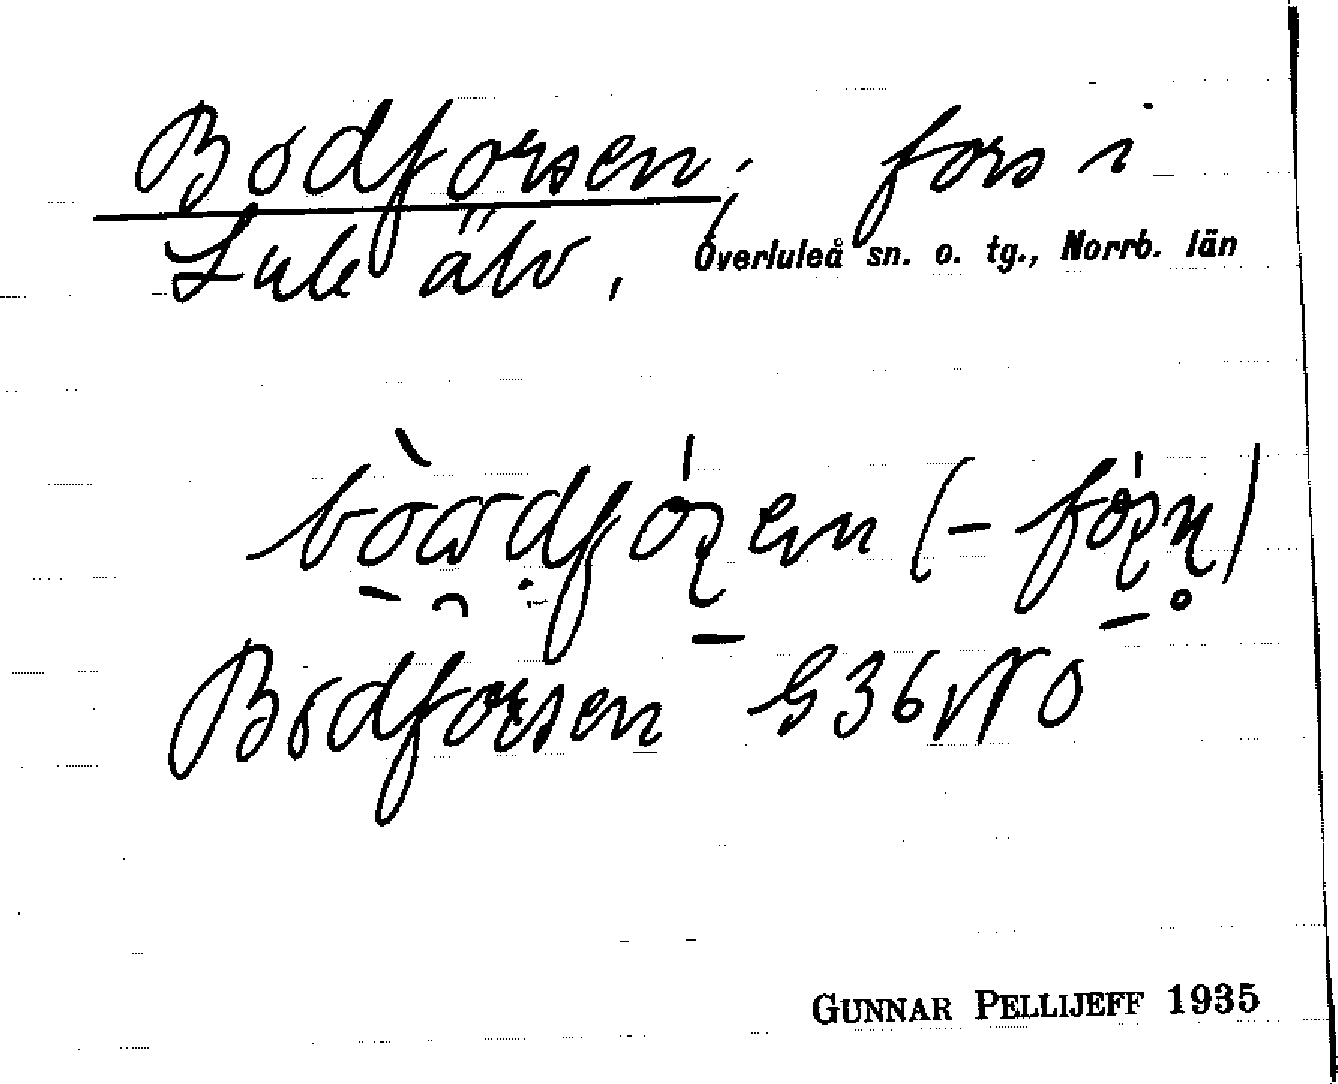 Bodforsen; fors i
Lule älv, Överluleå sn. o. tg., Norrb. län
Bodforsen G36NO
GUNNAR PELLIJEFF 1935